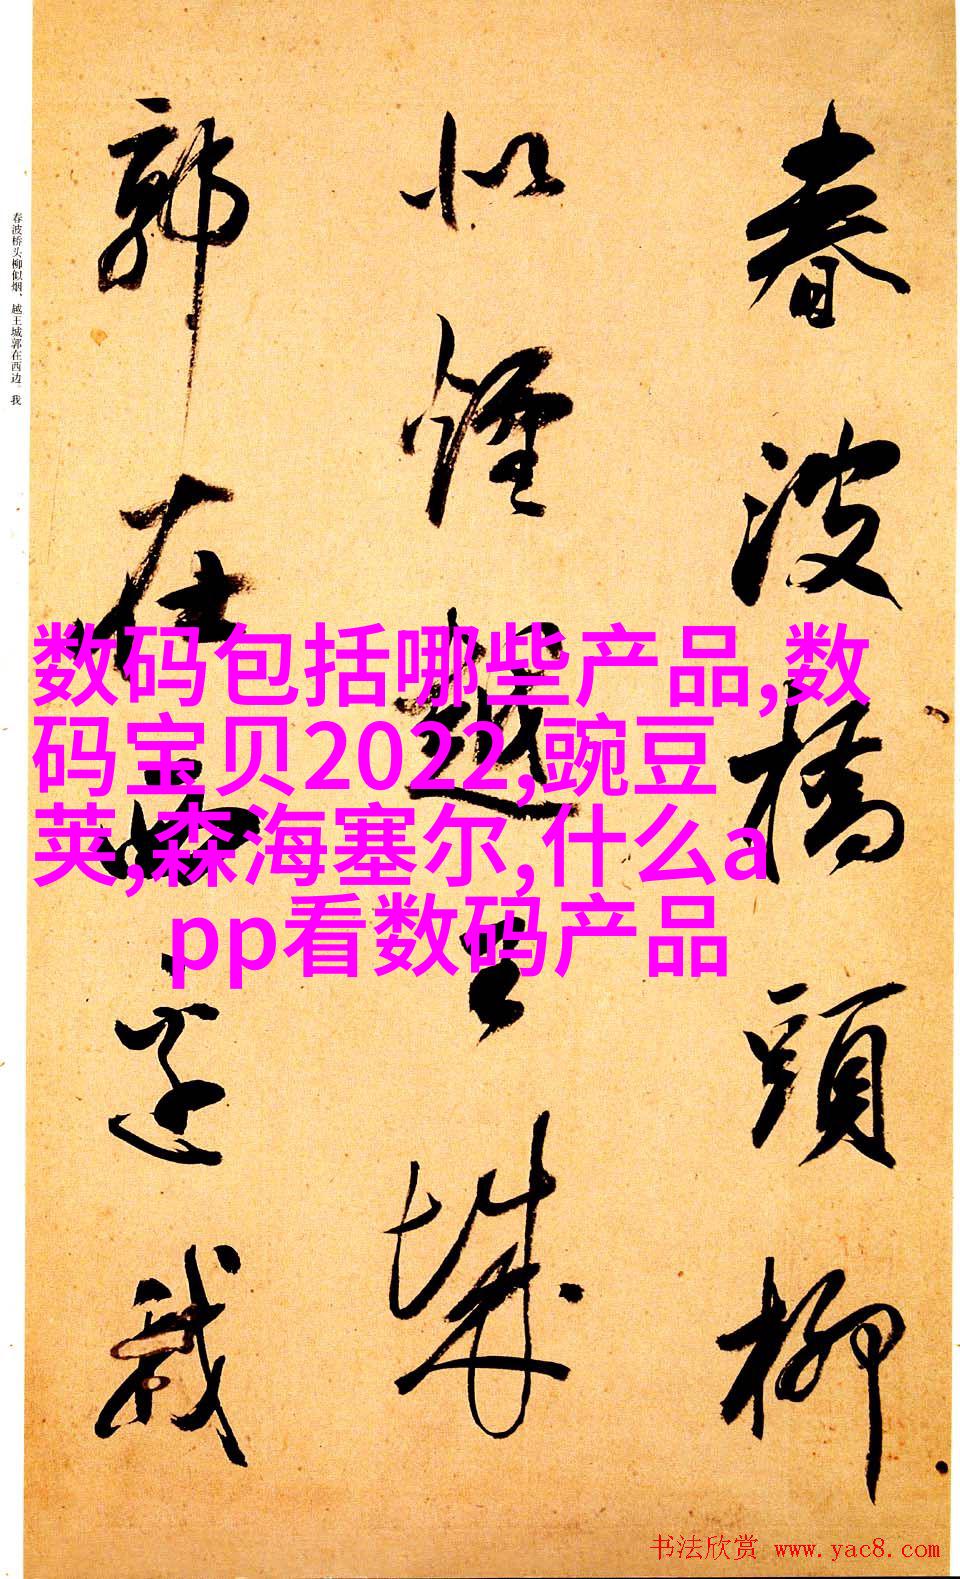 春波橋頭柳
似煙越王城
郭在西邊我
春波桥头柳似烟、越王城郭在西边。我
数码包括哪些产品,数
码宝贝2022,豌豆
荚,森海塞尔,什么a
pp看数码产品
书法欣赏 www.yac8.com